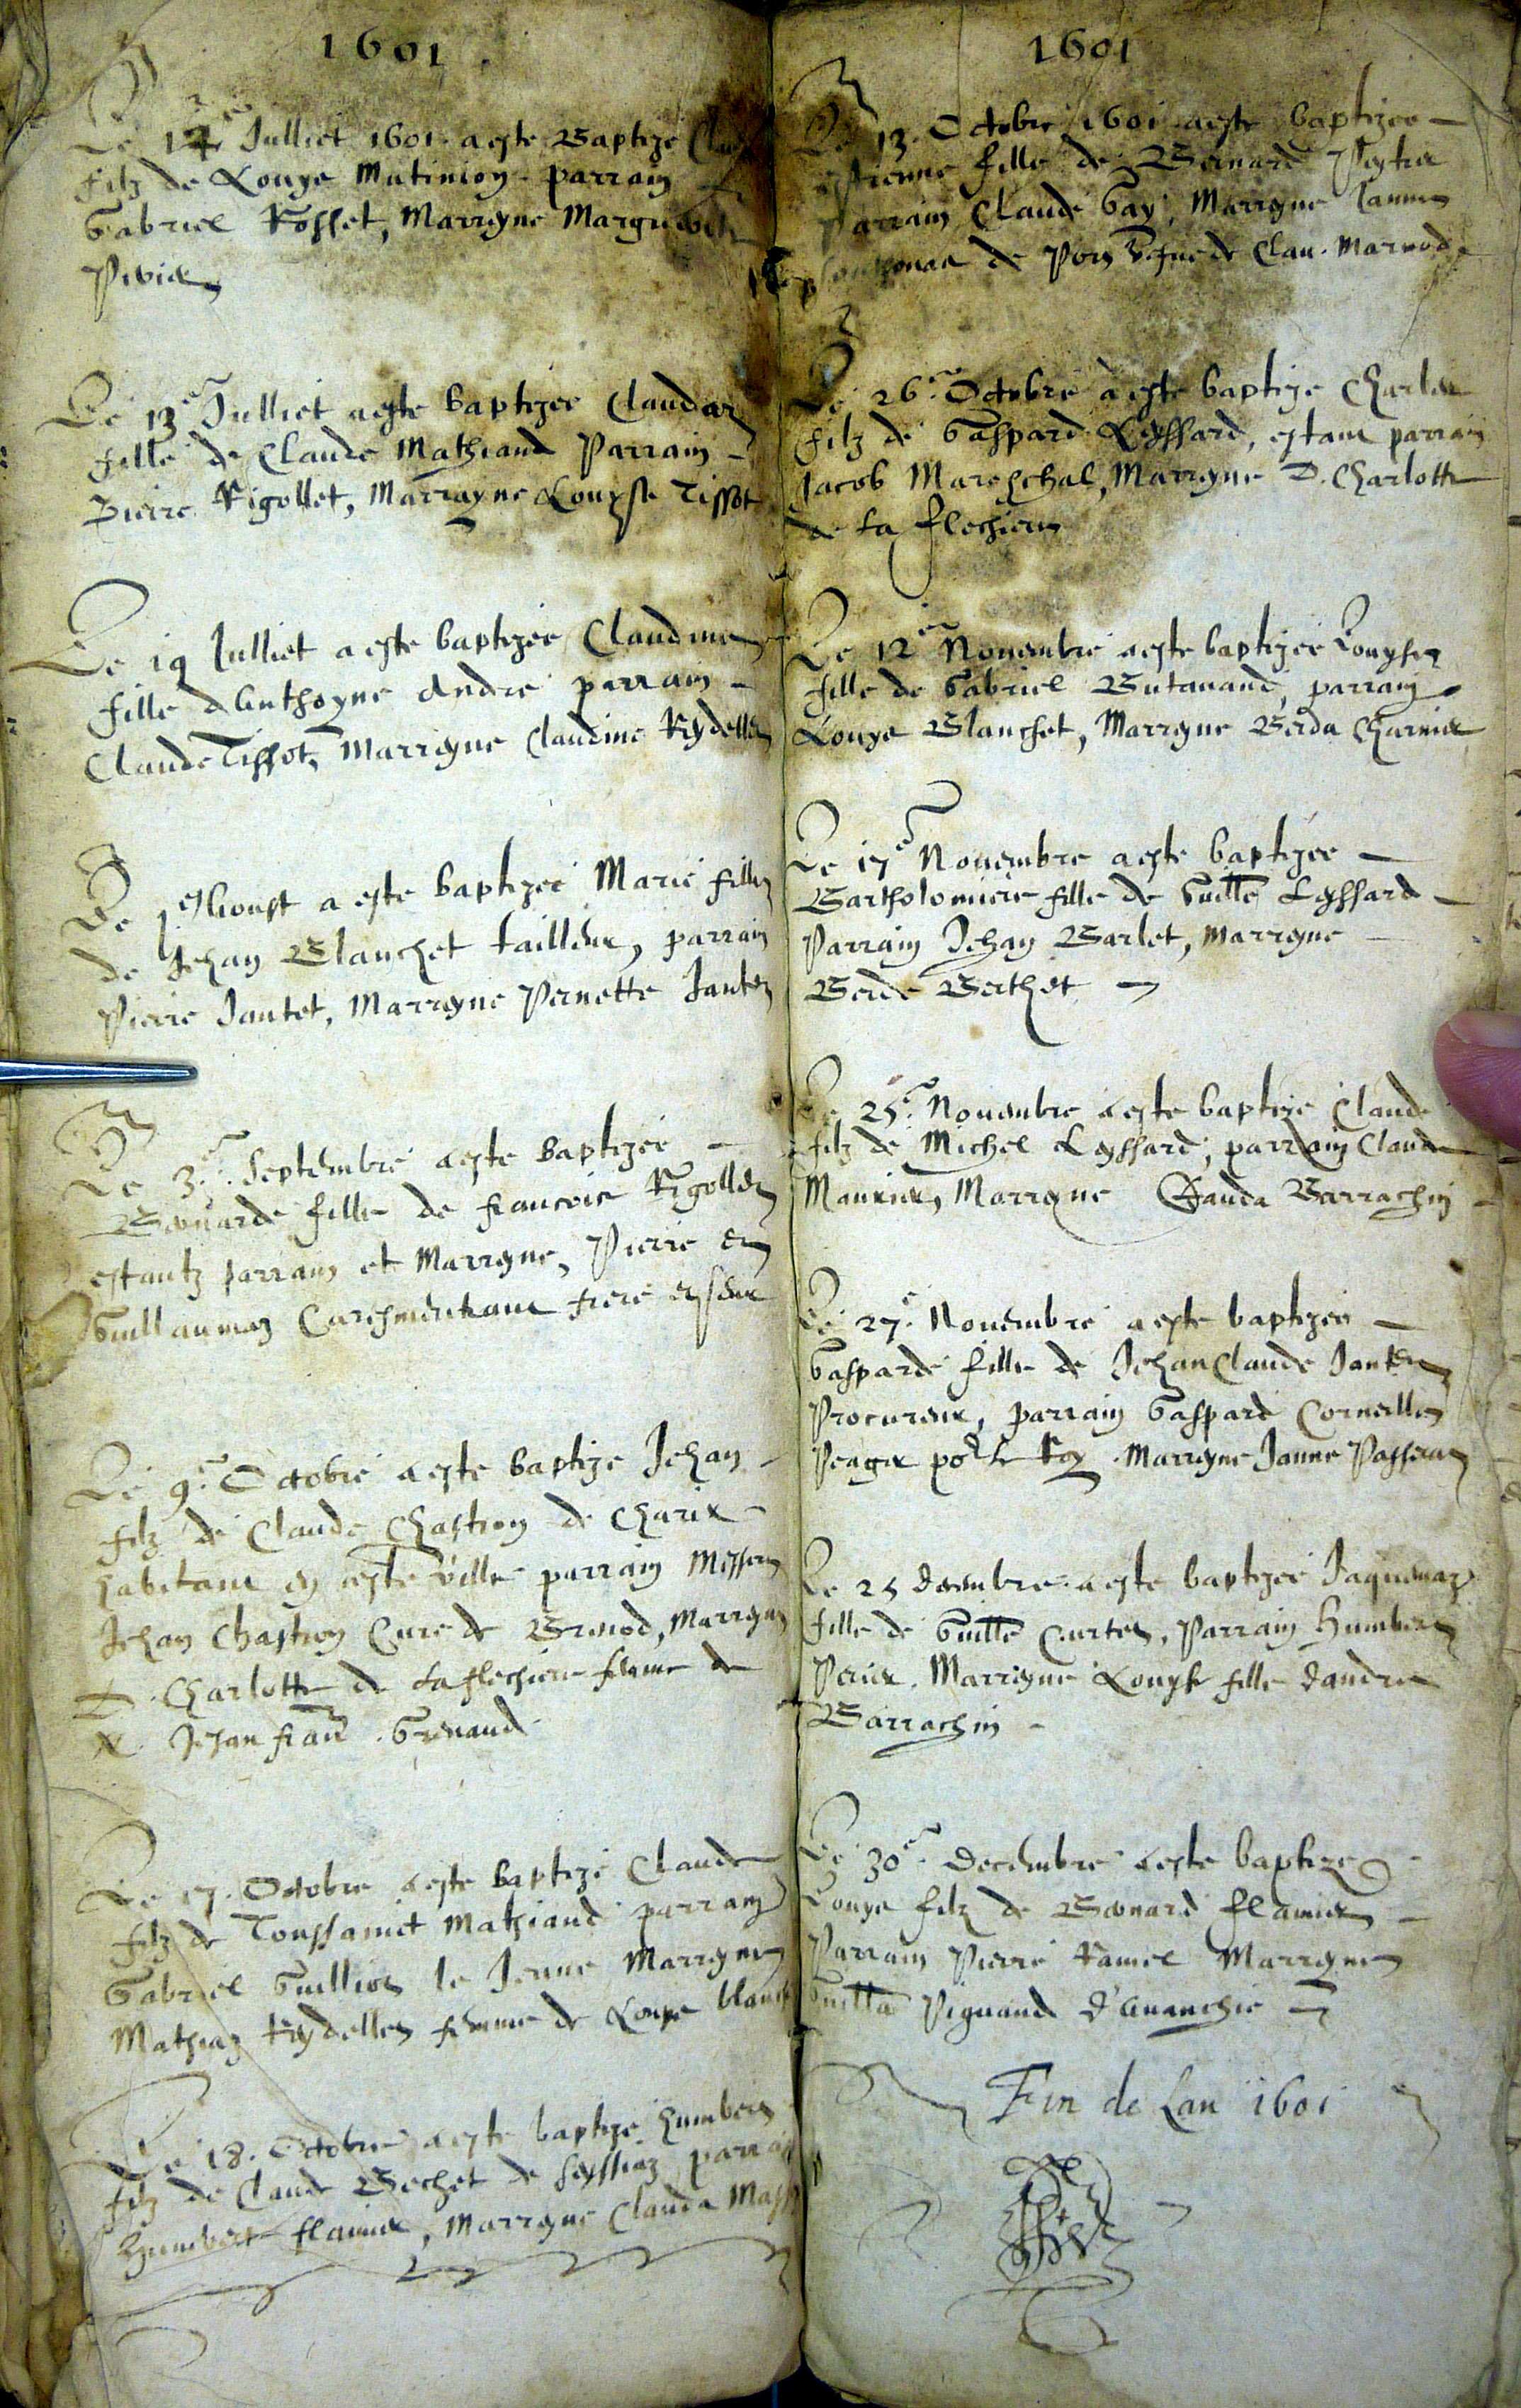 1601
Le 12 Julliet 1601. a este Baptizé
filz de Louys Mutinion parrain
Gabriel Rosset, Marryne Marguerite
Perier
Le 13e Julliet a este baptizee Claudaz
fille de Claude Mathiand Parrain
Pierre Rigollet, Marrayne Louyse Tissot
Le 19 Julliet a este baptizee Claudine
fille d'Anthoyne Andre parrain
Claude Tissot, Marryne Claudine Rydellet
Le j Aoust a este baptizee Marie fille
de Jehan Blanchet tailleur, parrain
Pierre Jantet, Marryne Pernette Jantet
Le 3e. Septembre a este baptizee
Bernarde fille de francois Rigollet
estantz parrain et Marryne, Pierre et
Guillaumaz Caresmentrant frere et seur
Le 9e. Octobre a este baptizé Jehan
filz de Claude Chastron de Charix
habitant en ceste ville parrain Messire
Jehan Chastron Cure de Brenod, Marryne
D. Charlotte de la flechiere femme de
N. Jehan fran. Grenaud
Le 17. Octobre a este baptizé Claude
filz de Toussainct Mathiand parrain
Gabriel Guilliot le Jeune Marryne
Mathiaz Rydellet femme de Louys
Le 18. Octobre a este baptizé humbert
filz de Claude Bechet de Leyssiaz
Humbert flamier, Marryne Clauda
1601
Le 13. Octobre 1601 a este baptizee
Estienne fille de Bernard
Parrain Claude Gay, Marryne Janne
de
Le 26e. Octobre a este baptizé Charles
filz de Gaspard Leyssard, estant parrain
Jacob Mareschal, Marryne D. Charlotte
de la flechiere
Le 12e Novembre a este baptizee Louyse
fille de Gabriel Butavand, parrain
Louys Blanchet, Marryne Berda Charnier
Le 17e Novembre a este baptizee
Bartholomiere fille de Guille Leyssard
Parrain Jehan Barlet, Marryne
Berde Berthet
Le 25e. Novembre a este baptizé Claude
filz de Michel Leyssard, parrain Claude
Maurier, Marryne Clauda Barrachin
Le 27e. Novembre a este baptizee
Gasparde fille de Jehan Claude Jantet
Procureur, parrain Gaspard Cornaille
Peager por le Roy. Marryne Janne Passerat
Le 25 decembre a este baptizee Jaquemaz
fille de Guille Curtet, Parrain Humbert
Perier. Marryne Louyse fille d'andre
Barrachin
Le 30e. Decembre a este baptizé
Louys filz de Bernard flamier
Parrain Pierre Ramel Marryne
Guilla Pignand
Fin de Lan 1601